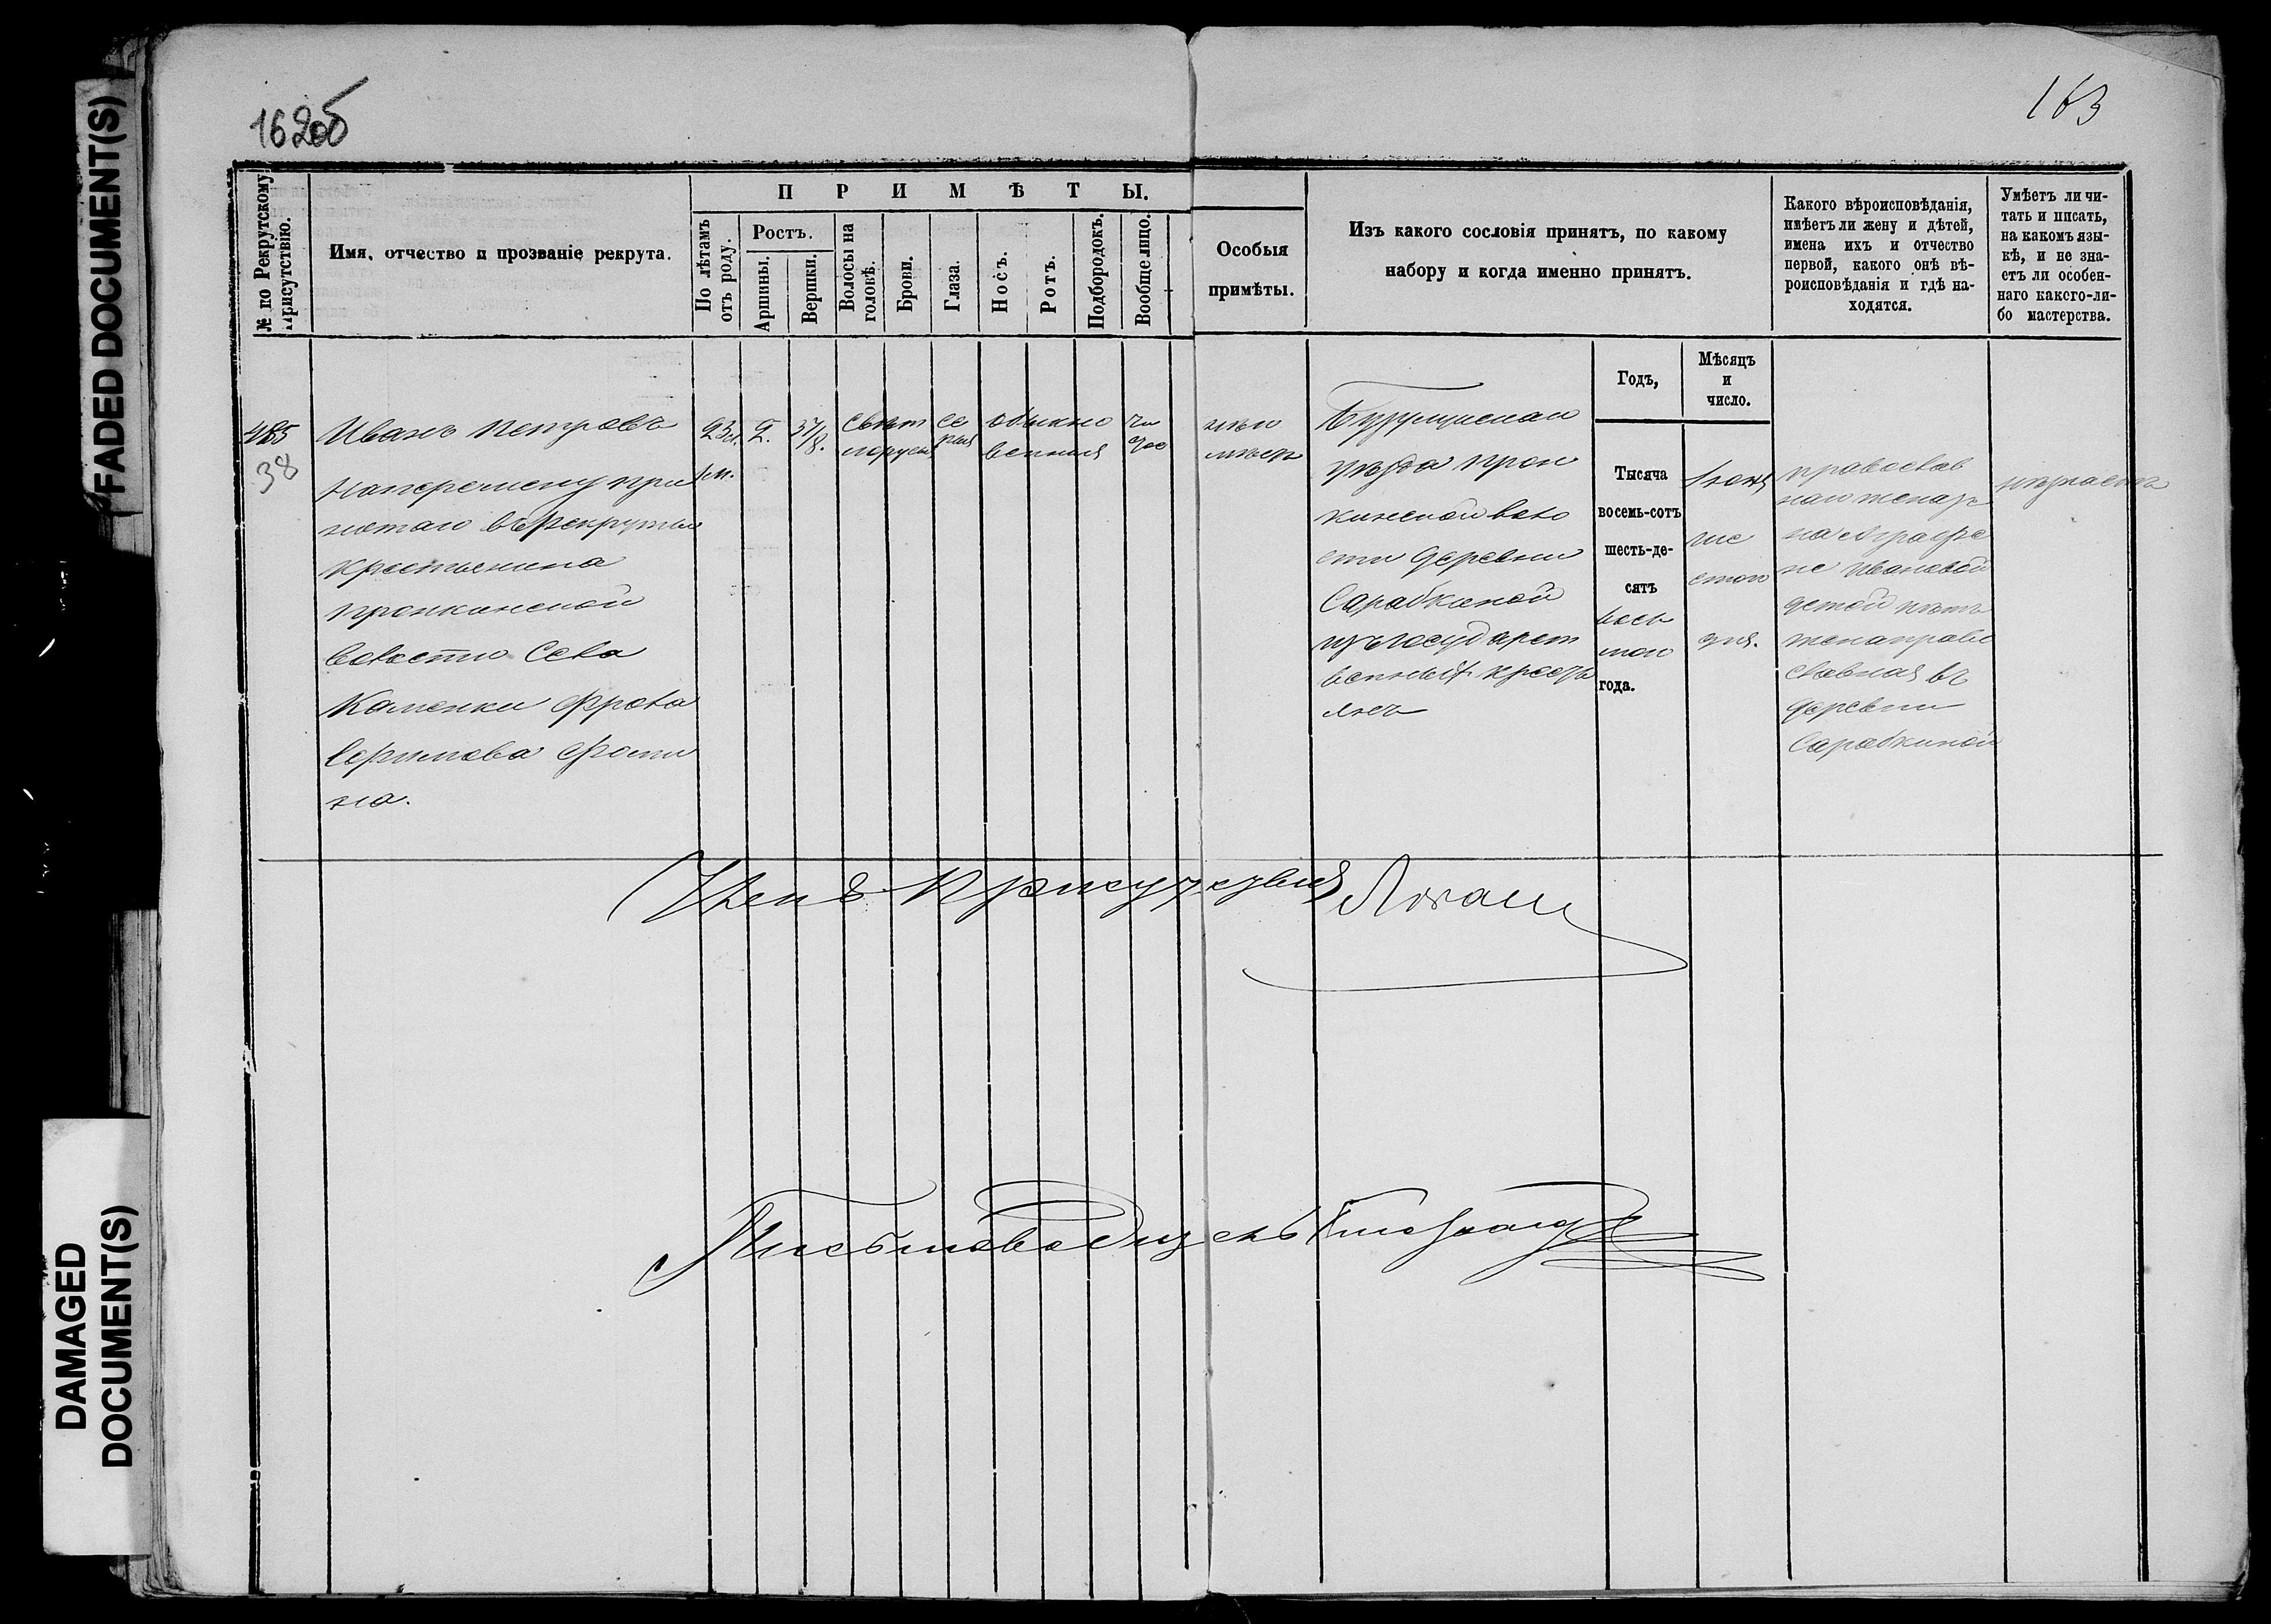 FADED DOCUMENT(S)
DAMAGED
DOCUMENT(S)
162об
163
№ по Рекрутскому
присутствію.
Имя, отчество и прозваніе рекрута.
ПРИМѢТЫ.
По лѣтамъ
отъ роду.
Ростъ.
Аршины.
Вершки.
Волосы на
головѣ.
Брови.
Глаза.
Носъ.
Ротъ.
Подбородокъ.
Вообще лицо.
Особыя
примѣты.
Изъ какого сословія принятъ, по какому
набору и когда именно принятъ.
Какого вѣроисповѣданія,
имѣетъ ли жену и дѣтей,
имена ихъ и отчество
первой, какого онѣ вѣ-
роисповѣданія и гдѣ на-
ходятся.
Умѣетъ ли чи-
тать и писать,
на какомъ язы-
кѣ, и не зна-
етъ ли особен-
наго какого-ли-
бо мастерства.
485
38
Иванъ Петровъ
наперемену при
нотаго въ рекруты
крестьенина
Пронкинской
волости Села
Каменки Фрола
Фоти
на.
23
2.
3 7/8.
свѣт
лорусы
се
рыя
обыкно
венныя
чи
стое
неи
мѣетъ
Бузулускаго
уѣзда Прон
кинской воло
сти деревни
Сарабкиной
изъ государст
венныхъ кресть
янъ
Годъ,
Тысяча
восемь-сотъ
шесть-де-
сятъ
вось
маго
года.
Мѣсяцъ
и
число.
Іюня
ше
стаго
дня.
православ
наго женатъ
на Аграфе
не Ивановой
детей нѣтъ
жена право
славная въ
деревни
Сарабкиной
незнаетъ
Членъ Присутствия
Письмоводитель